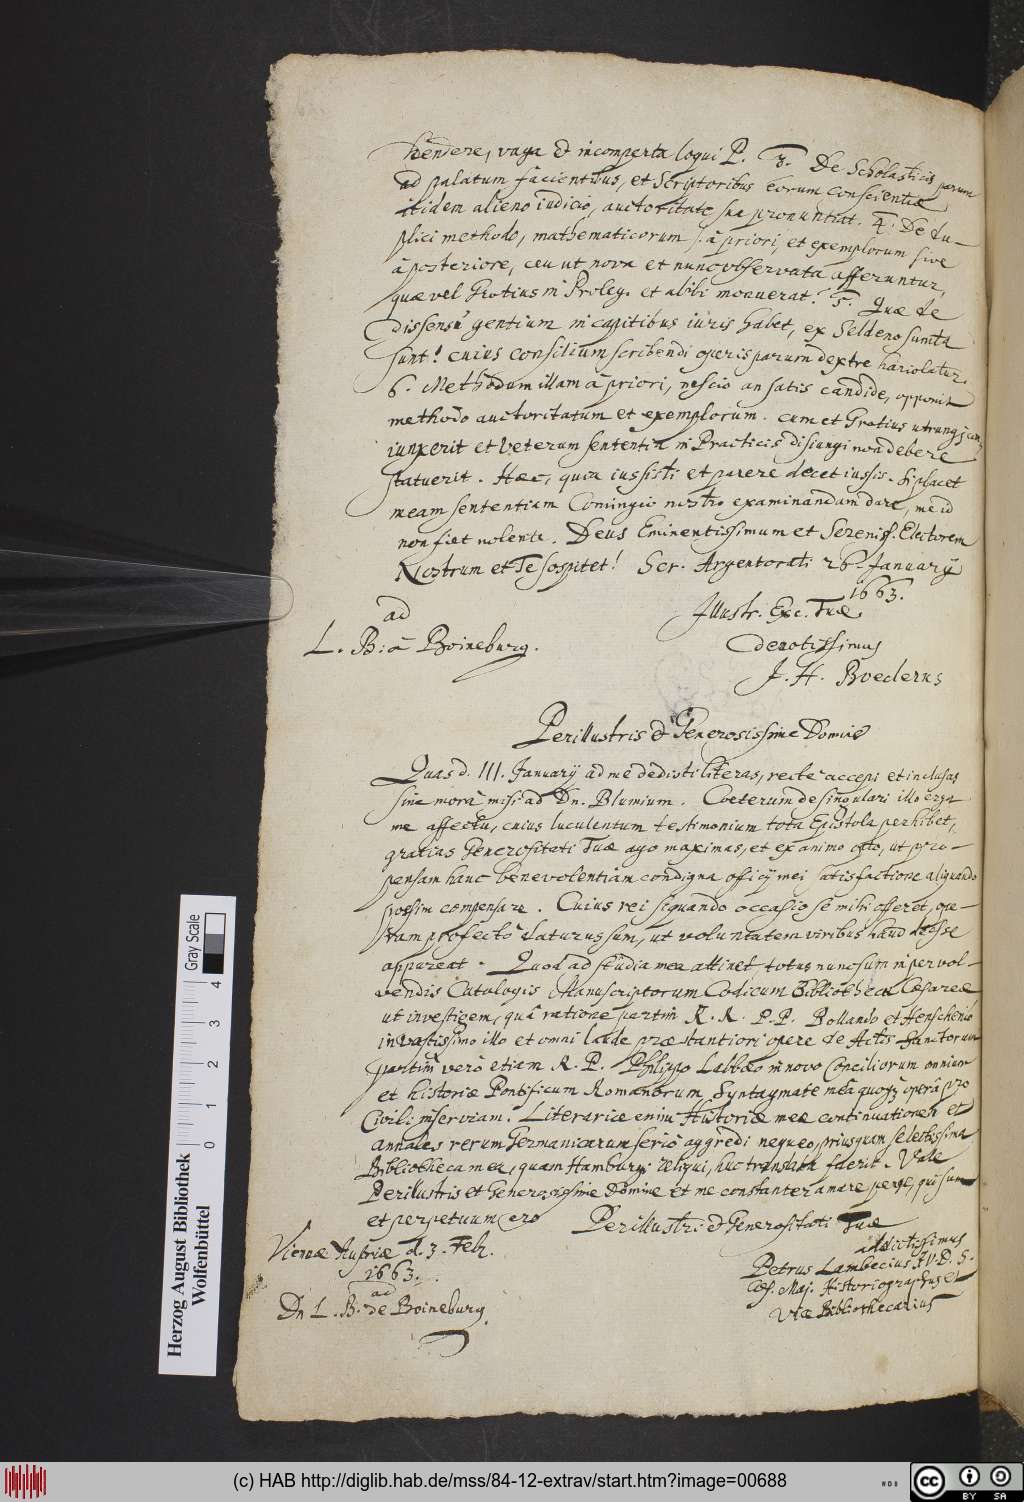 hendere, vaga & incomperta loqui P. 3. De Scholasticis parum
ad palatum facientibus, et Scriptoribus eorum conscientiæ
itidem alieno iudicio, auctoritate sua pronuntiat. 4. De du-
plici methodo, mathematicorum s. â priori, et exemplorum sive
â posteriore, ceu ut nova et nunc observata afferuntur,
quæ vel Grotius in Proleg. et alibi monuerat. 5. Quæ de
dissensu gentium in capitibus iuris habet, ex Seldeno sumta
sunt! cuius consilium scribendi operis parum dextre hariolatur.
6. Methodum illam â priori, nescio an satis candide, opponit
methodo auctoritatum et exemplorum. cum et Grotius utrunq; con-
iunxerit et veterum sententia in Practicis disiungi non debere
statuerit. Hæc, quia iussisti et parere decet iussis. Si placet
meam sententiam Conringio nostro examinandam dare, me id
non fiet nolente. Deus Eminentissimum et Sereniss. Electorem
Nostrum et Te sospitet! Scr. Argentorati 26. Januarij
1663.
Illustr. Exc. Tuæ
ad
L. B. â Boineburg.
devotissimus
J. H. Boeclerus
Perillustris & Generosissime Domine
Quas d. III. Januarij ad me dedisti literas, recte accepi et inclusas
sine morâ misi ad Dn. Blumium. Coeterum de singulari illo erga
me affectu, cuius luculentum testimonium tota Epistola perhibet,
gratias Generositati Tuæ ago maximas, et ex animo opto, ut pro-
pensam hanc benevolentiam condigna officij mei satisfactione aliquando
possim compensare. Cuius rei siquando occasio se mihi offeret, ope-
ram profectò daturus sum, ut voluntatem viribus haud deesse
appareat. Quod ad studia mea attinet, totus nunc sum in pervol-
vendis Catalogis Manuscriptorum Codicum Bibliothecæ Cæsareæ
ut investigem, quâ ratione partim R. R. P. P. Bollando et Henschenio
in vastissimo illo et omni laude præstantiori opere de Actis Sanctorum
partim verò etiam R. P. Philippo Labbæo in novo Conciliorum omnium
et historiæ Pontificum Romanorum Syntagmate meâ quoq; operâ pro
Civili inserviam. Literariæ enim Historiæ meæ continuationem et
annales rerum Germanicarum seriò aggredi nequeo, priusquam selectissima
Bibliotheca mea, quam Hamburgi reliqui, huc translata fuerit. Vale
Perillustris et Generosissime Domine et me constanter amare perge, qui sum
et perpetuum ero
Perillustri & Generositati Tuæ
Viennæ Austriæ d. 3. Febr.
1663.
ad
Dn L. B. de Boineburg.
addictissimus
Petrus Lambecius J. V. D. S.
Cæs. Maj. Historiographus et
Bibliothecarius
Herzog August Bibliothek
Wolfenbüttel
0 1 2 3 4
Gray Scale
(c) HAB http://diglib.hab.de/mss/84-12-extrav/start.htm?image=00688
cc BY SA